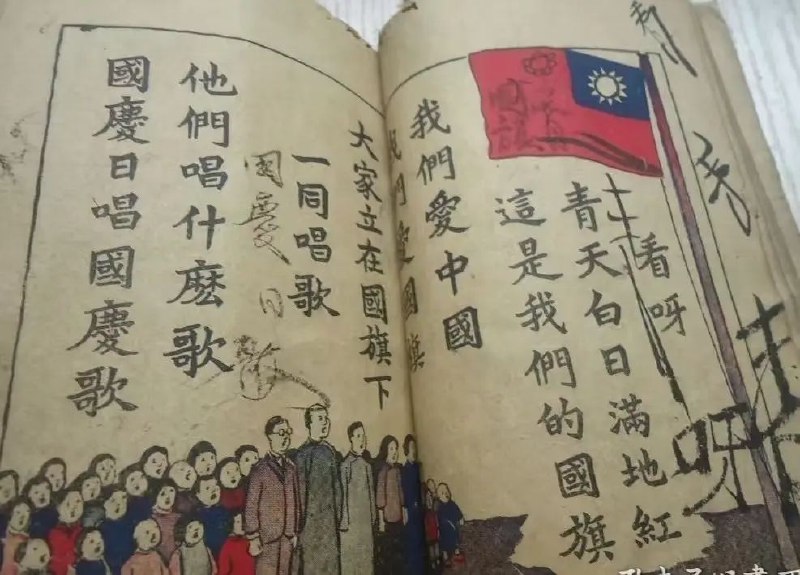 看呀
青天白日滿地紅
這是我們的國旗
我們愛中國
我們愛國旗
大家立在國旗下
一同唱歌
國慶日
他們唱什麽歌
國慶日唱國慶歌